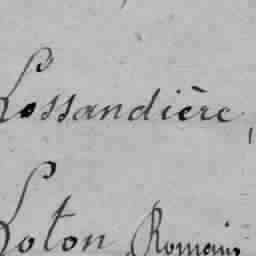 Lossandière,
Loton Romain